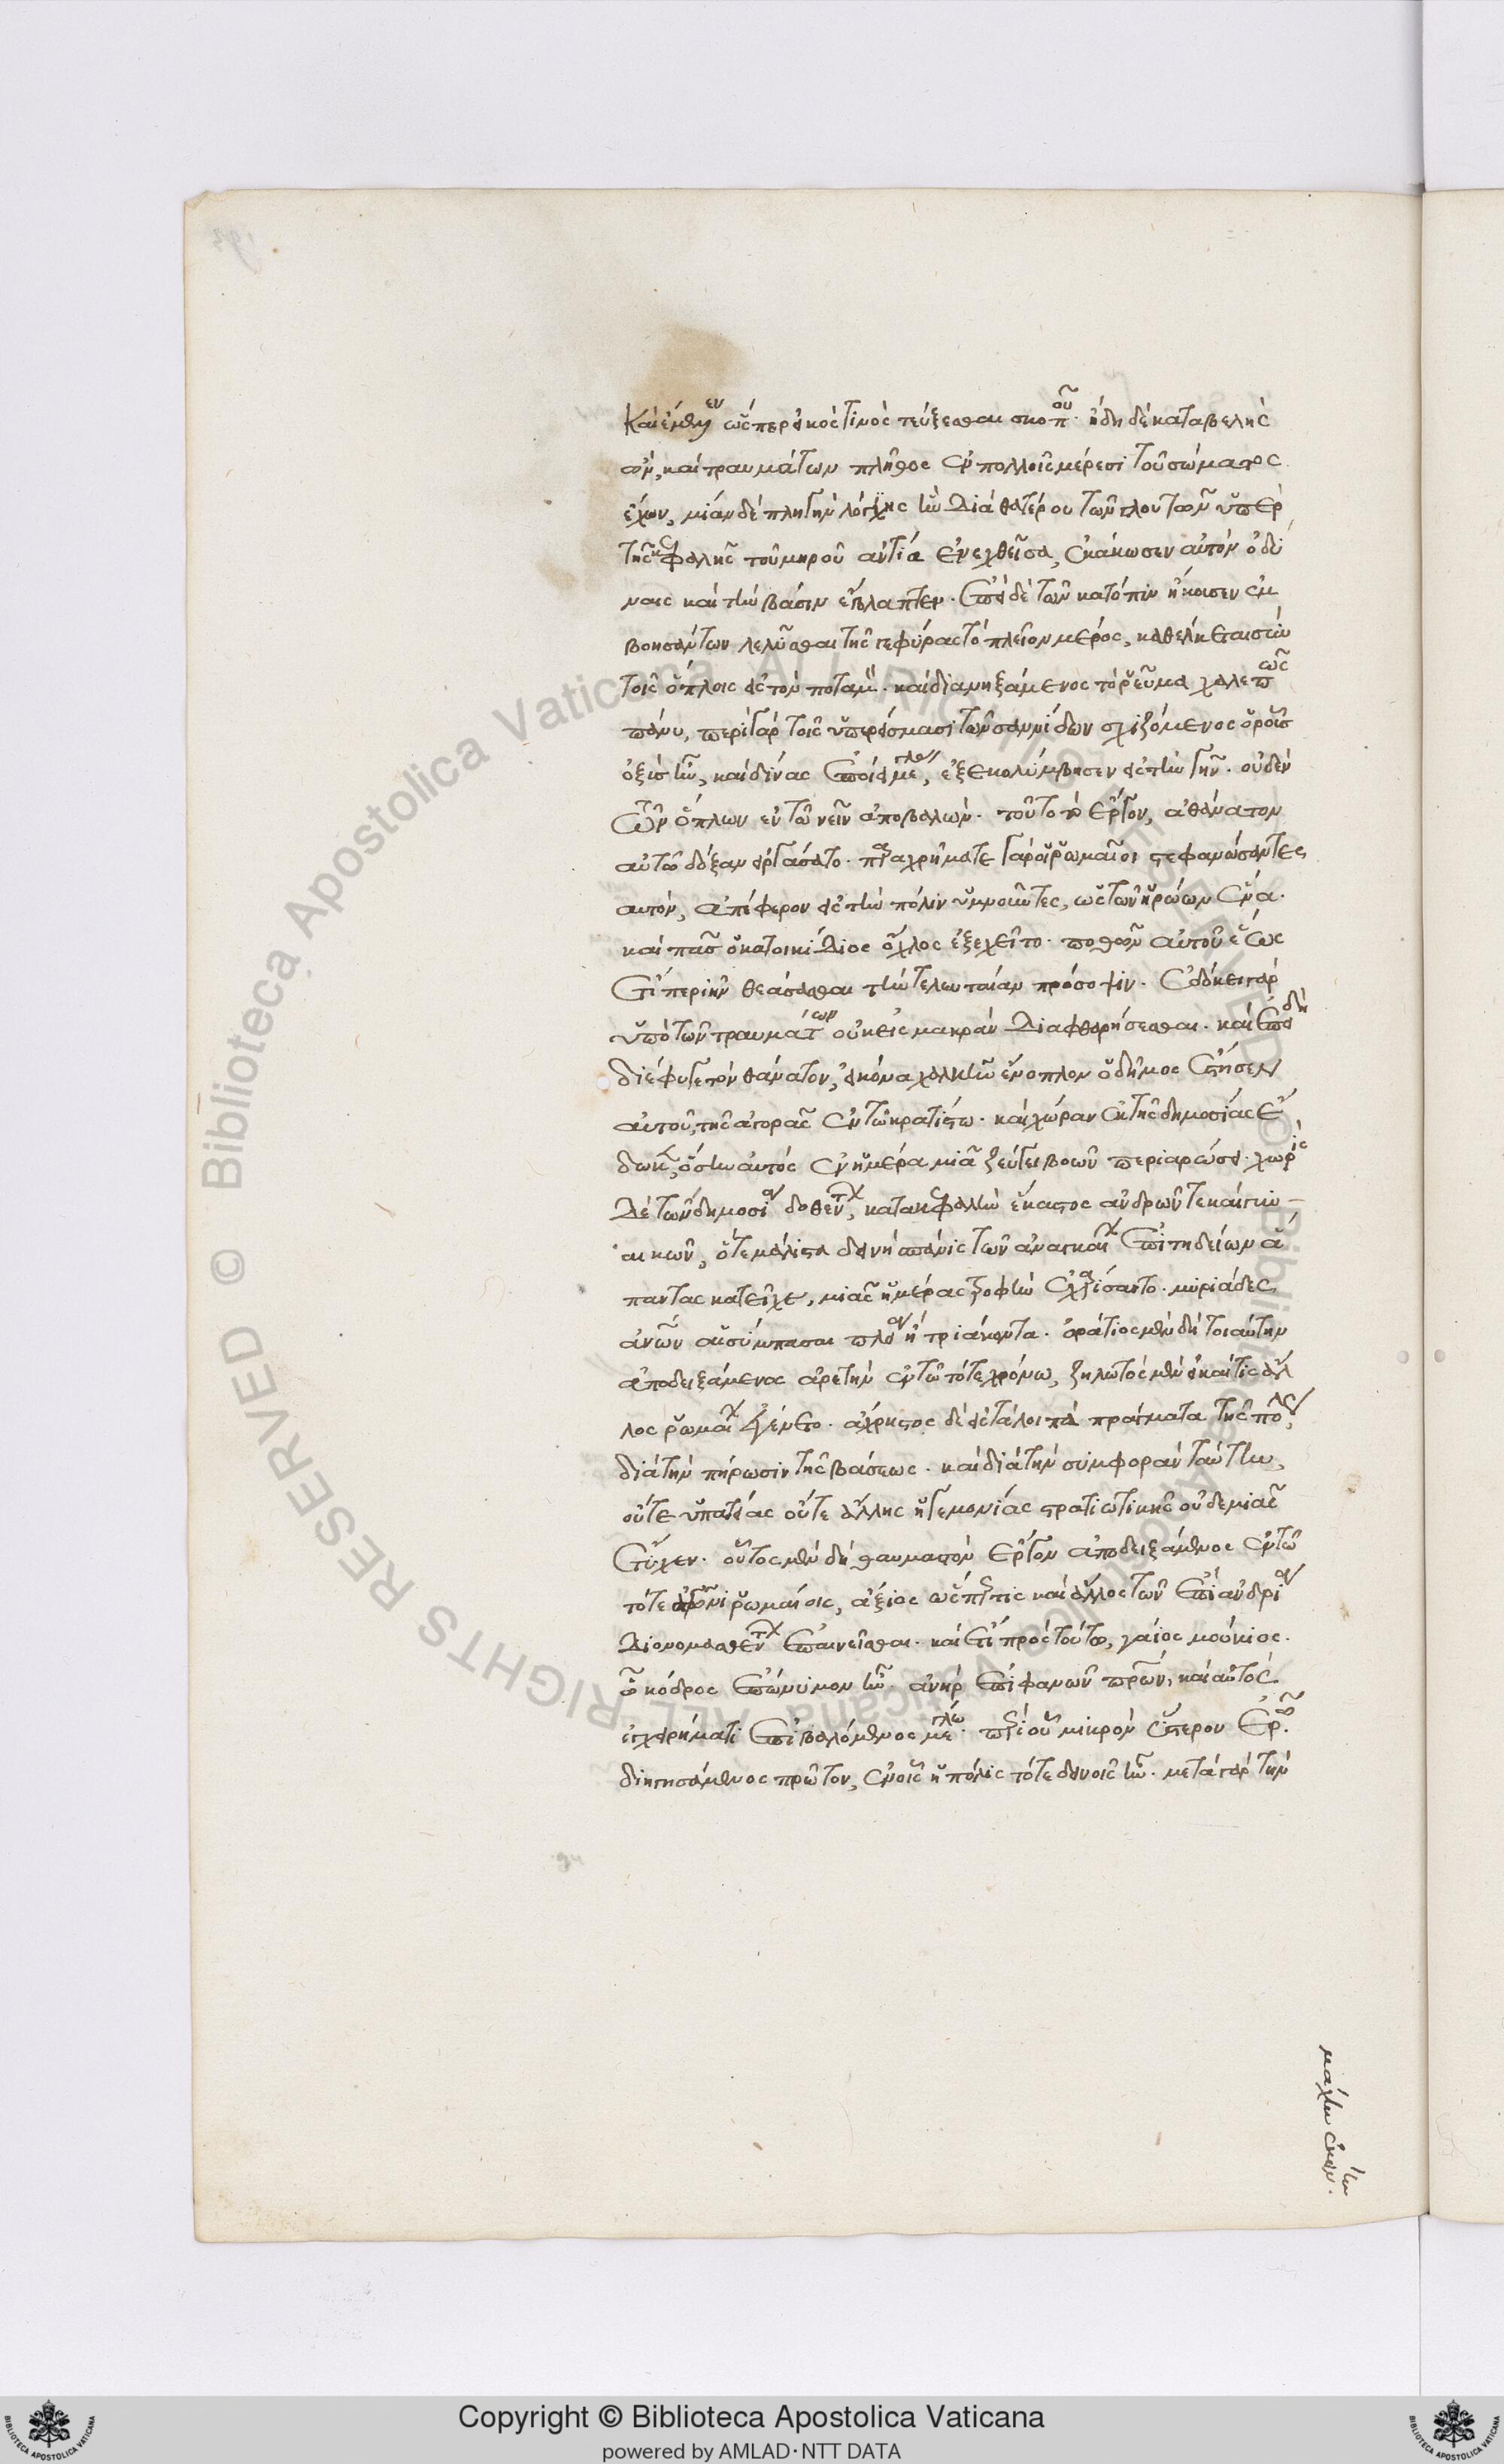 καὶ ἔμελλεν ὥσπερ εἰκὸς τινὸς τεύξεσθαι σκοποῦ. ἤδη δὲ καταβελὴς
ὢν, καὶ τραυμάτων πλῆθος ἐν πολλοῖς μέρεσι τοῦ σώματος
ἔχων, μίαν δὲ πληγὴν λόγχης ἣ διὰ θατέρου τῶν γλουτῶν ὑπὲρ
τῆς κεφαλῆς τοῦ μηροῦ ἀντία ἐνεχθεῖσα, ἐκάκωσεν αὐτὸν ὀδύ
ναις καὶ τὴν βάσιν ἔβλαπτεν. ἐπεὶ δὲ τῶν κατόπιν ἤκουσεν ἐμ
βοησάντων λελῦσθαι τῆς γεφύρας τὸ πλεῖον μέρος, καθέλκεται σὺν
τοῖς ὅπλοις εἰς τὸν ποταμόν. καὶ διανηξάμενος τὸ ῥεῦμα χαλεπῶς
πάνυ, περὶ γὰρ τοῖς ὑπερείσμασι τῶν σανίδων σχιζόμενος ὁ ροῦς
ὀξὺς ἦν, καὶ δίνας ἐποίει μεγάλας, ἐξεκολύμβησεν εἰς τὴν γῆν. οὐδὲν
τῶν ὅπλων ἐν τῷ νεῖν ἀποβαλών. τοῦτο τὸ ἔργον, ἀθάνατον
αὐτῷ δόξαν εἰργάσατο. παραχρῆμά τε γὰρ οἱ ῥωμαῖοι στεφανώσαντες
αὐτὸν, ἀπέφερον εἰς τὴν πόλιν ὑμνοῦντες, ὡς τῶν ἡρώων ἕνα.
καὶ πᾶς ὁ κατοικίδιος ὄχλος ἐξεχεῖτο. ποθῶν αὐτοῦ ἕως
ἔτι περιῆν θεάσασθαι τὴν τελευταίαν πρόσοψιν. ἐδόκει γὰρ
ὑπὸ τῶν τραυμάτων οὐκ εἰς μακρὰν διαφθαρήσεσθαι. καὶ ἐπειδὴ
διέφυγε τὸν θάνατον, εἰκόνα χαλκῆν ἔνοπλον ὁ δῆμος ἔστησεν
αὐτοῦ, τῆς ἀγορᾶς ἐν τῷ κρατίστῳ. καὶ χώραν ἐκ τῆς δημοσίας ἔ
δωκεν, ὅσην αὐτὸς ἐν ἡμέρᾳ μιᾷ ζεύγει βοῶν περιαρώσει. χωρὶς
δὲ τῶν δημοσίᾳ δοθέντων, κατὰ κεφαλὴν ἕκαστος ἀνδρῶν τε καὶ γυ
αικῶν, ὅτε μάλιστα δεινὴ σπάνις τῶν ἀναγκαίων ἐπιτηδείων ἅ
παντας κατεῖχε, μιᾶς ἡμέρας τροφὴν ἐχαρίσαντο. μυριάδες
ἀνῶν αἱ σύμπασαι πλείους ἢ τριάκοντα. ὁράτιος μὲν δὴ τοιαύτην
ἀποδειξάμενος ἀρετὴν ἐν τῷ τότε χρόνῳ, ζηλωτὸς μὲν εἰ καί τις ἄλ
λος ῥωμαίων ἐγένετο. ἄχρηστος δὲ εἰς τὰ λοιπὰ πράγματα τῆς πόλεως,
διὰ τὴν πήρωσιν τῆς βάσεως. καὶ διὰ τὴν συμφορὰν ταύτην,
οὔτε ὑπατείας οὔτε ἄλλης ἡγεμονίας στρατιωτικῆς οὐδεμιᾶς
ἔτυχεν. οὗτος μὲν δὴ θαυμαστὸν ἔργον ἀποδειξάμενος ἐν τῷ
τότε ἀγῶνι ῥωμαίοις, ἄξιος ὥσπερ τις καὶ ἄλλος τῶν ἐπ᾽ ἀνδρείᾳ
διονομασθέντων ἐπαινεῖσθαι. καὶ ἔτι πρὸς τούτῳ, γάϊος μούκιος.
ᾧ κόδρος ἐπώνυμον ἦν. ἀνὴρ ἐπιφανῶν πρῶν, καὶ αὐτὸς
ἐγχειρήματι ἐπιβαλόμενος μεγάλῳ. περὶ οὗ μικρὸν ὕστερον ἐρῶ.
διηγησάμενος πρῶτον, ἐν οἷς ἡ πόλις τότε δεινοῖς ἦν. μετὰ γὰρ τὴν
μάχην ἐκείνην.